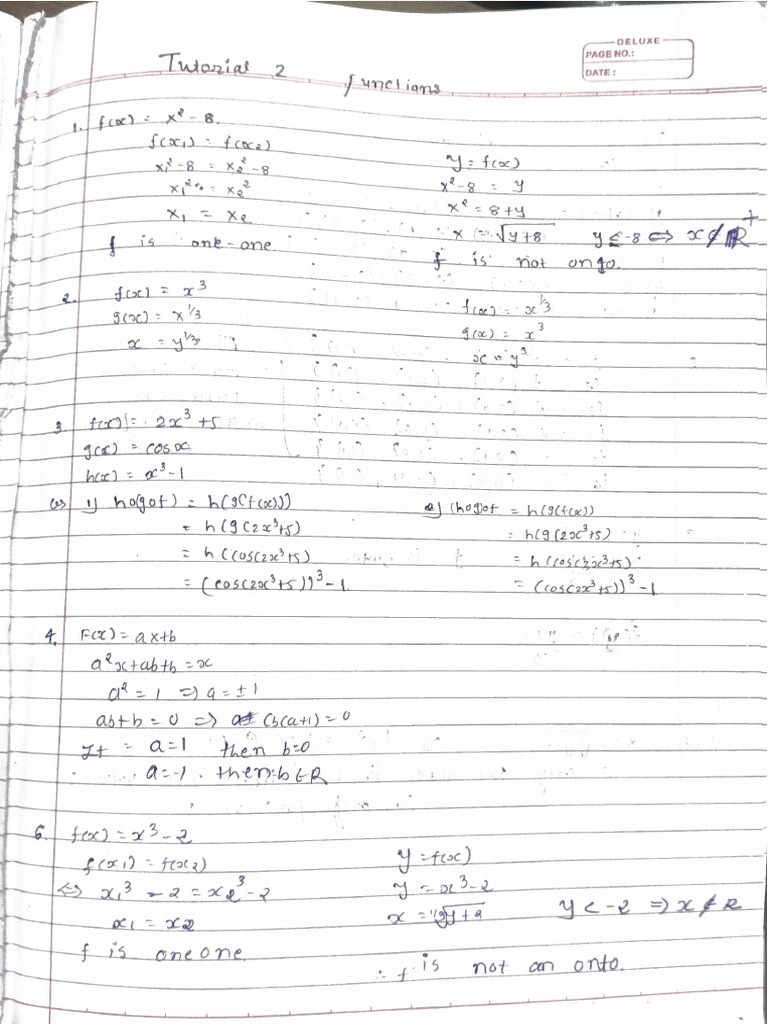 DELUXE
PAGE NO.:
DATE :
Tutorial 2
functions
1. f(x) = x² - 8.
f(x₁) = f(x₂)
x₁² - 8 = x₂² - 8
x₁² = x₂²
x₁ = x₂
f is one-one
y = f(x)
x² - 8 = y
x² = 8 + y
x = √y+8 y ≤ -8 ⇔ x ∉ R⁺
f is not onto.
2. f(x) = x³
g(x) = x^1/3
x = y^1/3
f(x) = x^1/3
g(x) = x³
x = y³
3. f(x) = 2x³ + 5
g(x) = cosx
h(x) = x³ - 1
1) ho(gof) = h(g(f(x)))
= h(g(2x³+5)
= h(cos(2x³+5)
= (cos(2x³+5))³ - 1
2) (hog)of = h(g(f(x))
= h(g(2x³+5)
= h(cos(2x³+5)
= (cos(2x³+5))³ - 1
4. F(x) = ax+b
a²x + ab + b = x
a² = 1 ⇒ a = ± 1
ab + b = 0 ⇒ (b(a+1) = 0
It = a=1 then b=0
a=-1. then b ∈ R
6. f(x) = x³ - 2
f(x₁) = f(x₂)
⇔ x₁³ - 2 = x₂³ - 2
x₁ = x₂
f is one one
y = f(x)
y = x³ - 2
x = ³√y+2 y < -2 ⇒ x ∉ R
∴ f is not an onto.